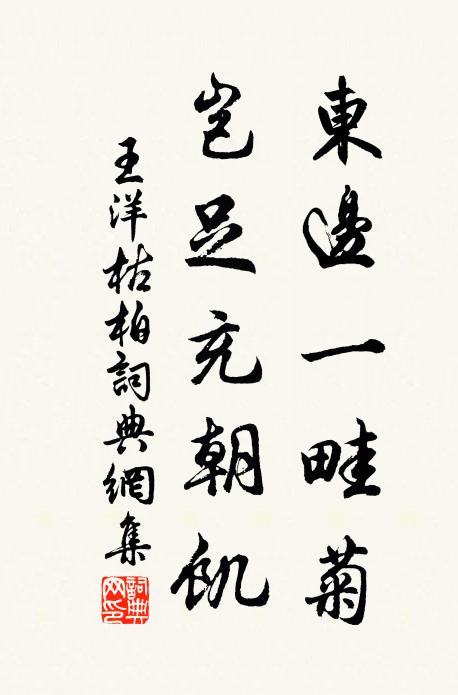 東邊一畦菊
豈足充朝飢
王洋枯柏詞典網集
詞典網印